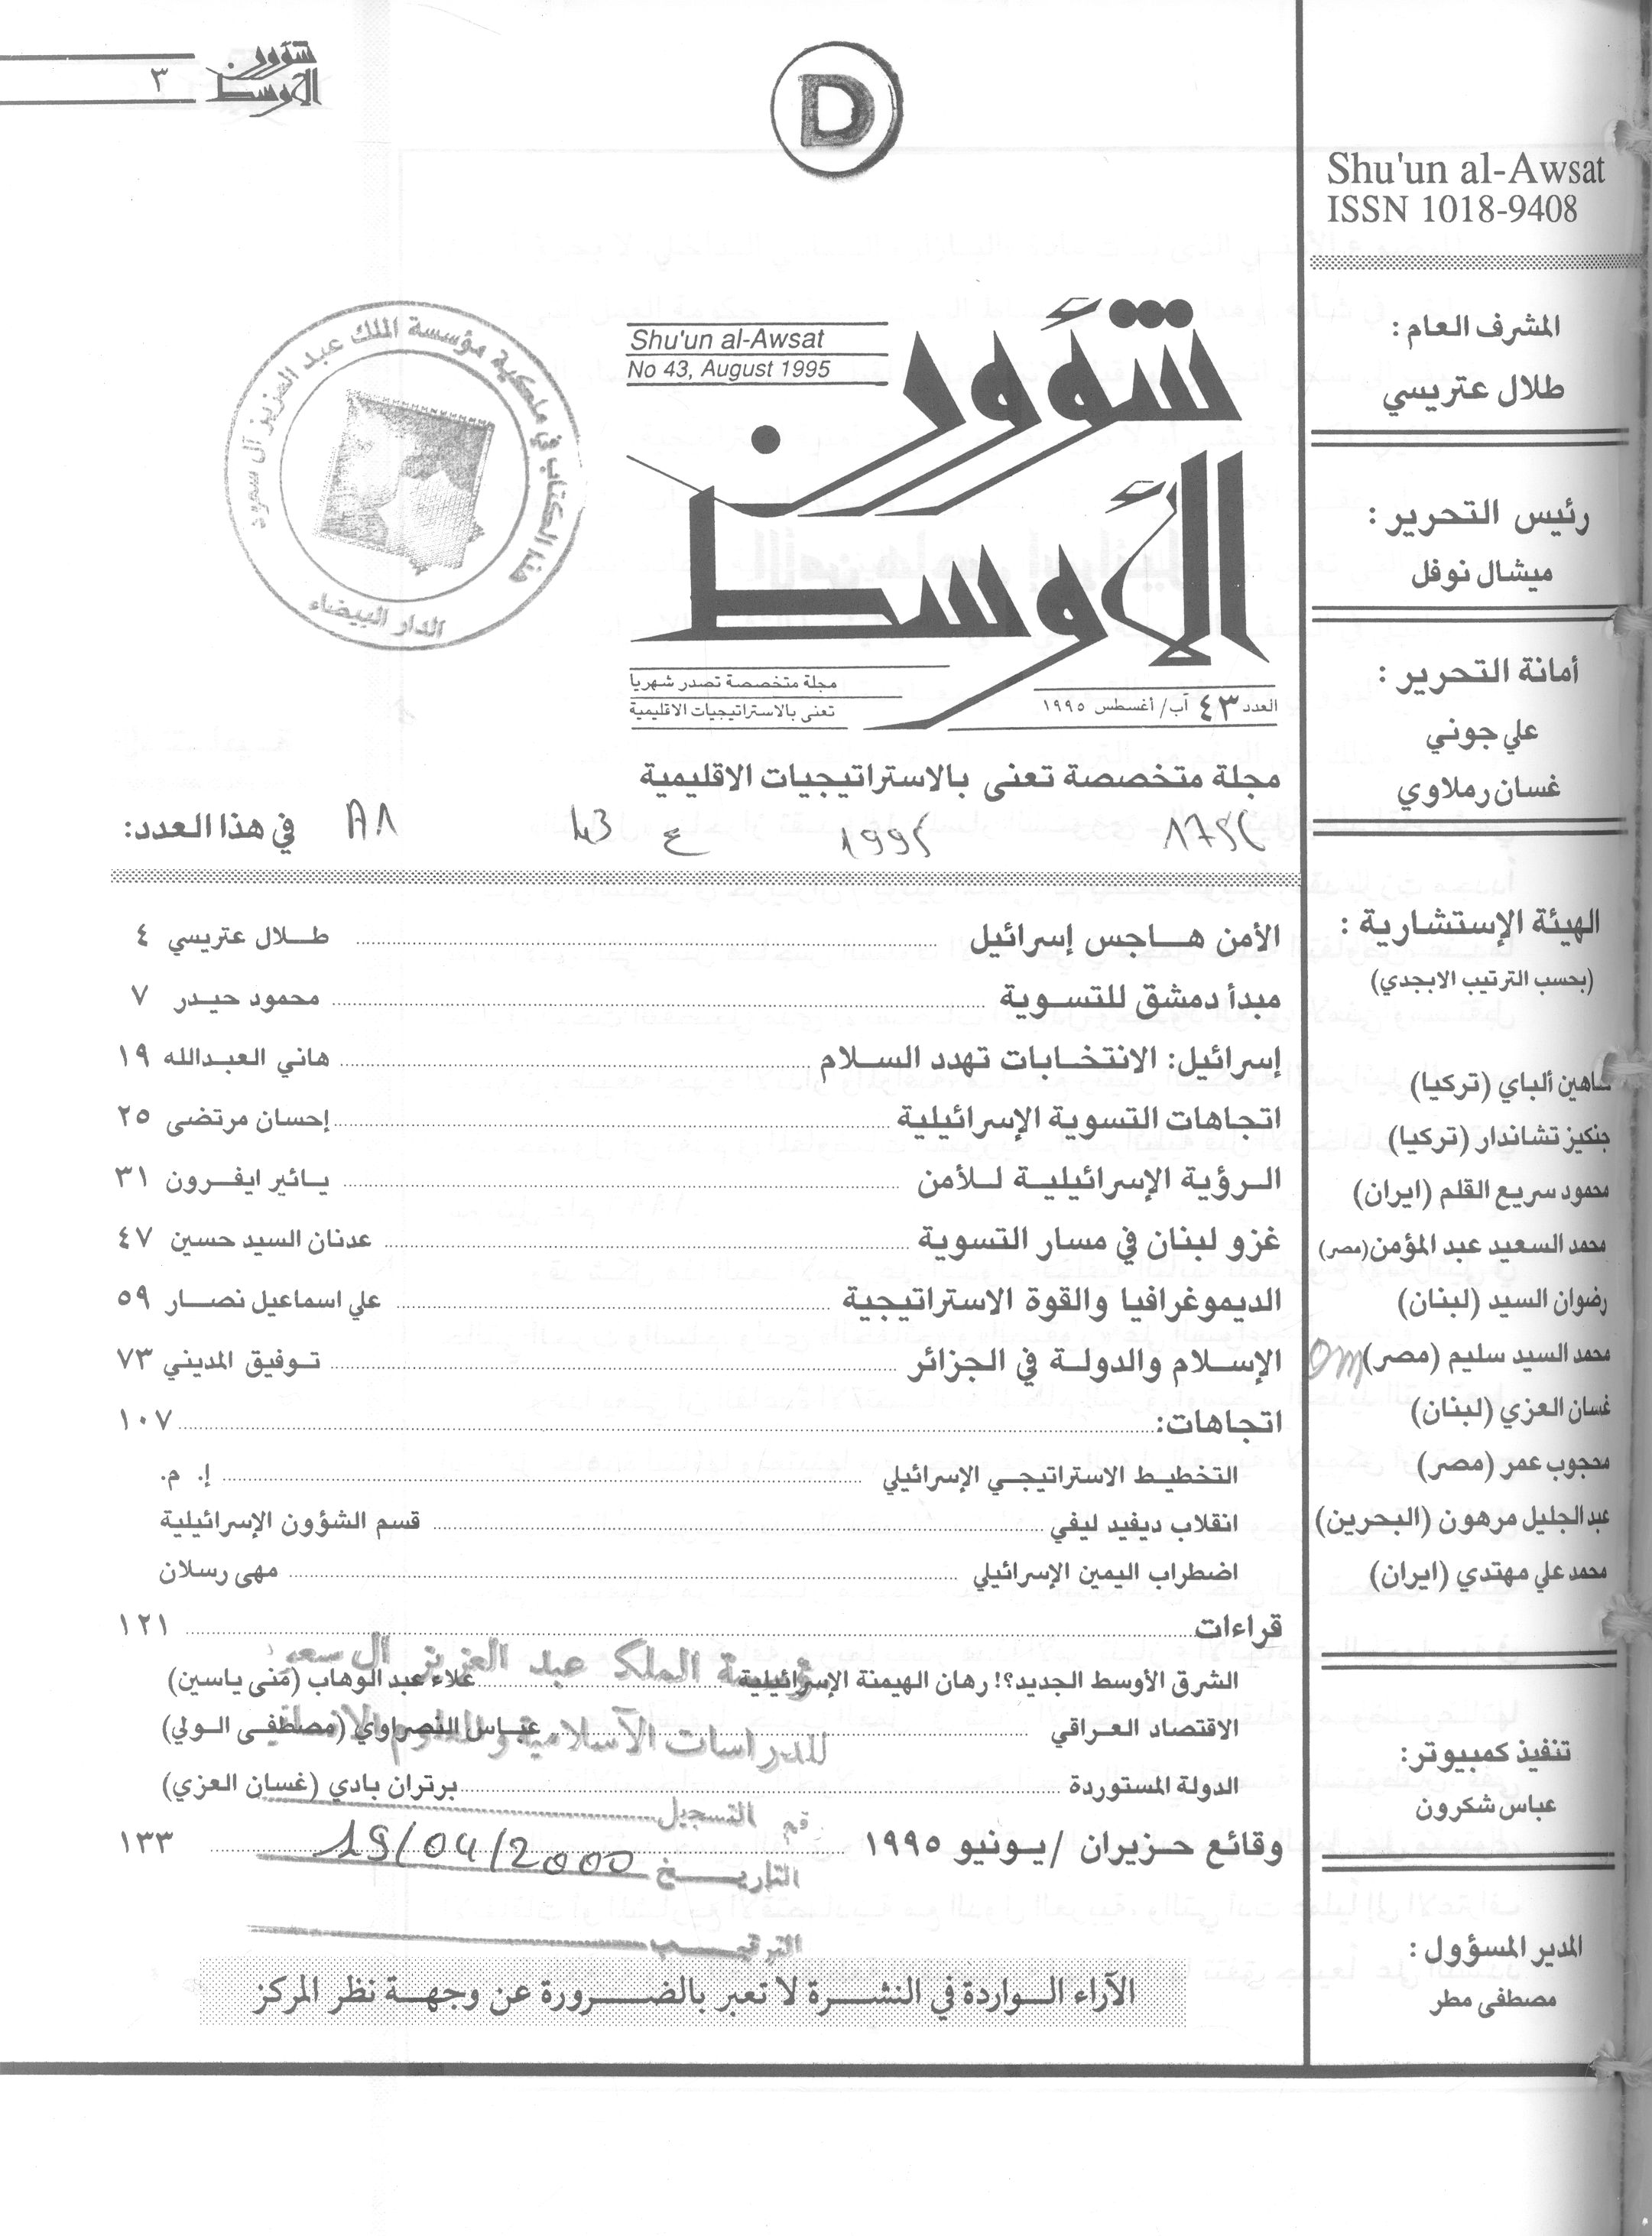 ٣
شؤون الأوسط
D
Shu'un al-Awsat
ISSN 1018-9408
المشرف العام :
طلال عتريسي
رئيس التحرير :
ميشال نوفل
أمانة التحرير :
علي جوني
غسان رملاوي
الهيئة الإستشارية :
(بحسب الترتيب الابجدي)
شاهين ألباي (تركيا)
جنكيز تشاندار (تركيا)
محمود سريع القلم (ايران)
محمد السعيد عبد المؤمن (مصر)
رضوان السيد (لبنان)
محمد السيد سليم (مصر)
غسان العزي (لبنان)
محجوب عمر (مصر)
عبد الجليل مرهون (البحرين)
محمد علي مهتدي (ايران)
تنفيذ كمبيوتر:
عباس شكرون
المدير المسؤول :
مصطفى مطر
Shu'un al-Awsat
No 43, August 1995
شؤون
الأوسط
مجلة متخصصة تصدر شهريا
تعنى بالاستراتيجيات الاقليمية
العدد ٤٣ آب/ أغسطس ١٩٩٥
هذا الكتاب في ملكية مؤسسة الملك عبد العزيز آل سعود
الدار البيضاء
مجلة متخصصة تعنى بالاستراتيجيات الاقليمية
1995 ع 43
في هذا العدد:
الأمن هـاجس إسرائيل ........ طـلال عتريسي ٤
مبدأ دمشق للتسوية ........ محمود حيـدر ٧
إسرائيل: الانتخـابات تهدد السـلام ........ هاني العبـدالله ١٩
اتجاهات التسوية الإسرائيلية ........ إحسان مرتضى ٢٥
الـرؤية الإسرائيليـة لـلأمن ........ يـائير ايفـرون ٣١
غزو لبنان في مسار التسوية ........ عدنان السيد حسين ٤٧
الديموغرافيا والقوة الاستراتيجية ........ علي اسماعيل نصـار ٥٩
الإسـلام والدولـة في الجزائر ........ تـوفيق المديني ٧٣
اتجاهات: ........ ١٠٧
التخطيط الاستراتيجي الإسرائيلي ........ إ. م.
انقلاب ديفيد ليفي ........ قسم الشؤون الإسرائيلية
اضطراب اليمين الإسرائيلي ........ مهى رسلان
قراءات ........ ١٢١
الشرق الأوسط الجديد؟! رهان الهيمنة الإسرائيلية ........ علاء عبد الوهاب (مُنى ياسين)
الاقتصاد العـراقي ........ عبـاس النصراوي (مصطفـى الـولي)
الدولة المستوردة ........ برتران بادي (غسان العزي)
وقائع حـزيران / يـونيو ١٩٩٥ ........ ١٣٣
مؤسسة الملك عبد العزيز آل سعود
للدراسات الآسلامية والعلوم الإنسانية
رقم التسجيل
التاريـخ 19/04/2000
الترقيـم
الآراء الـواردة في النشـرة لا تعبر بالضـرورة عن وجهـة نظر المركز